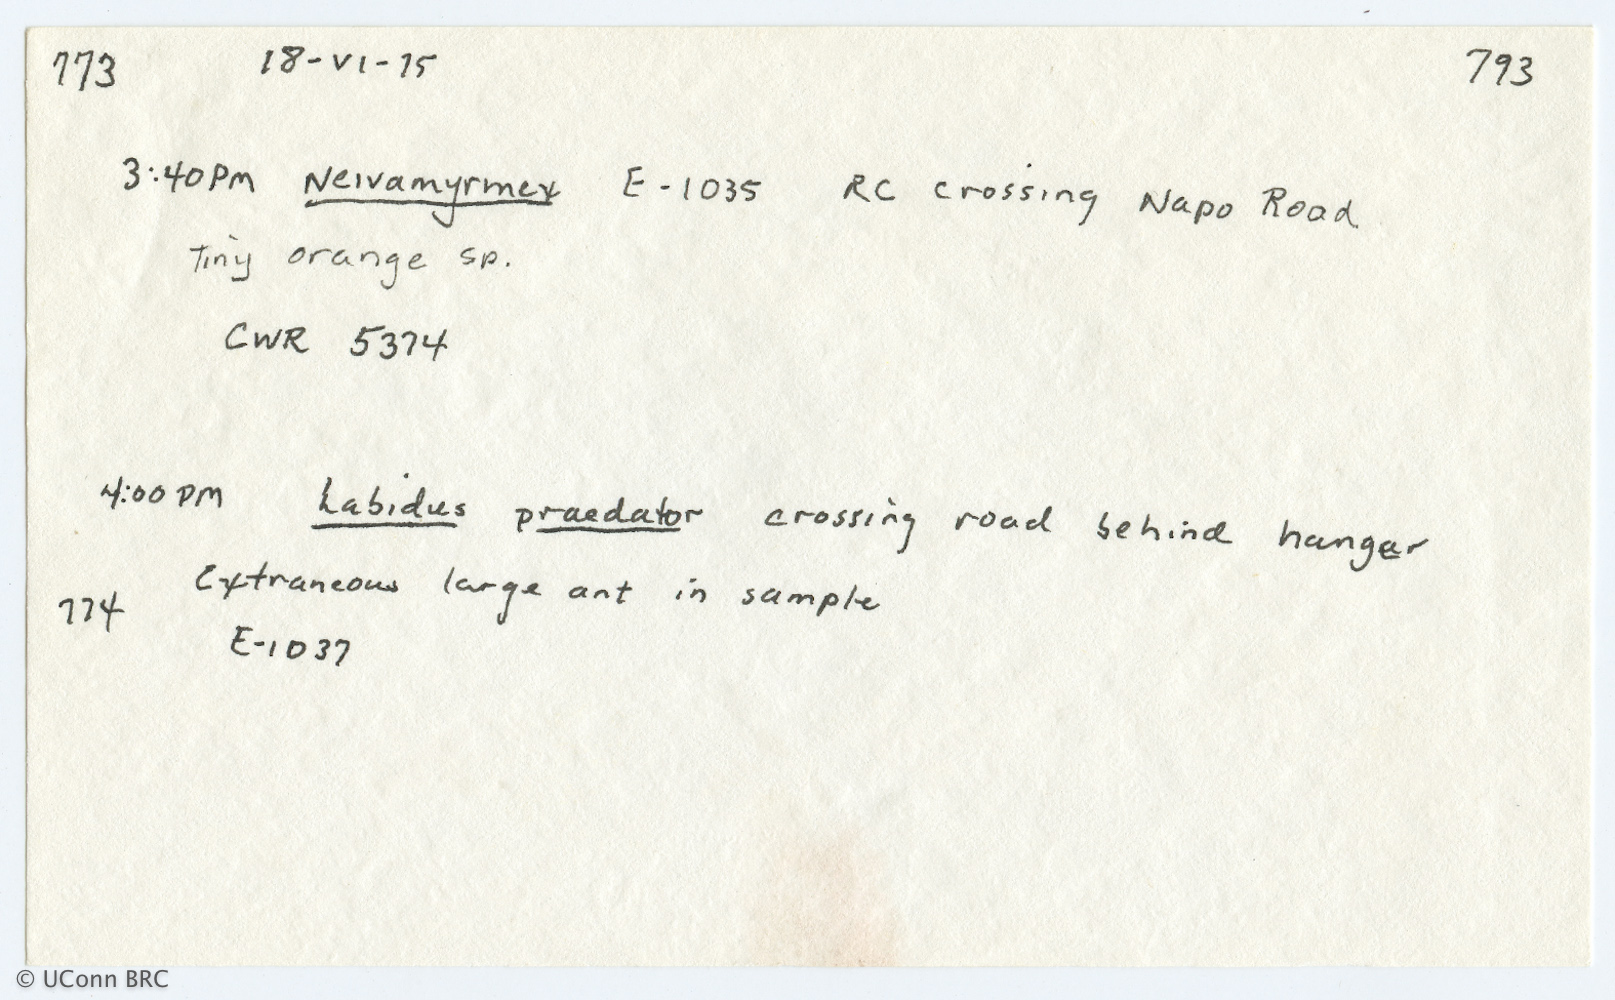 773 18-VI-75 793
3:40PM Neivamyrmex E-1035 RC crossing Napo Road
Tiny orange sp.
CWR 5374
4:00 PM Labidus praedator crossing road behind hangar
Extraneous large ant in sample
774
E-1037
© UConn BRC